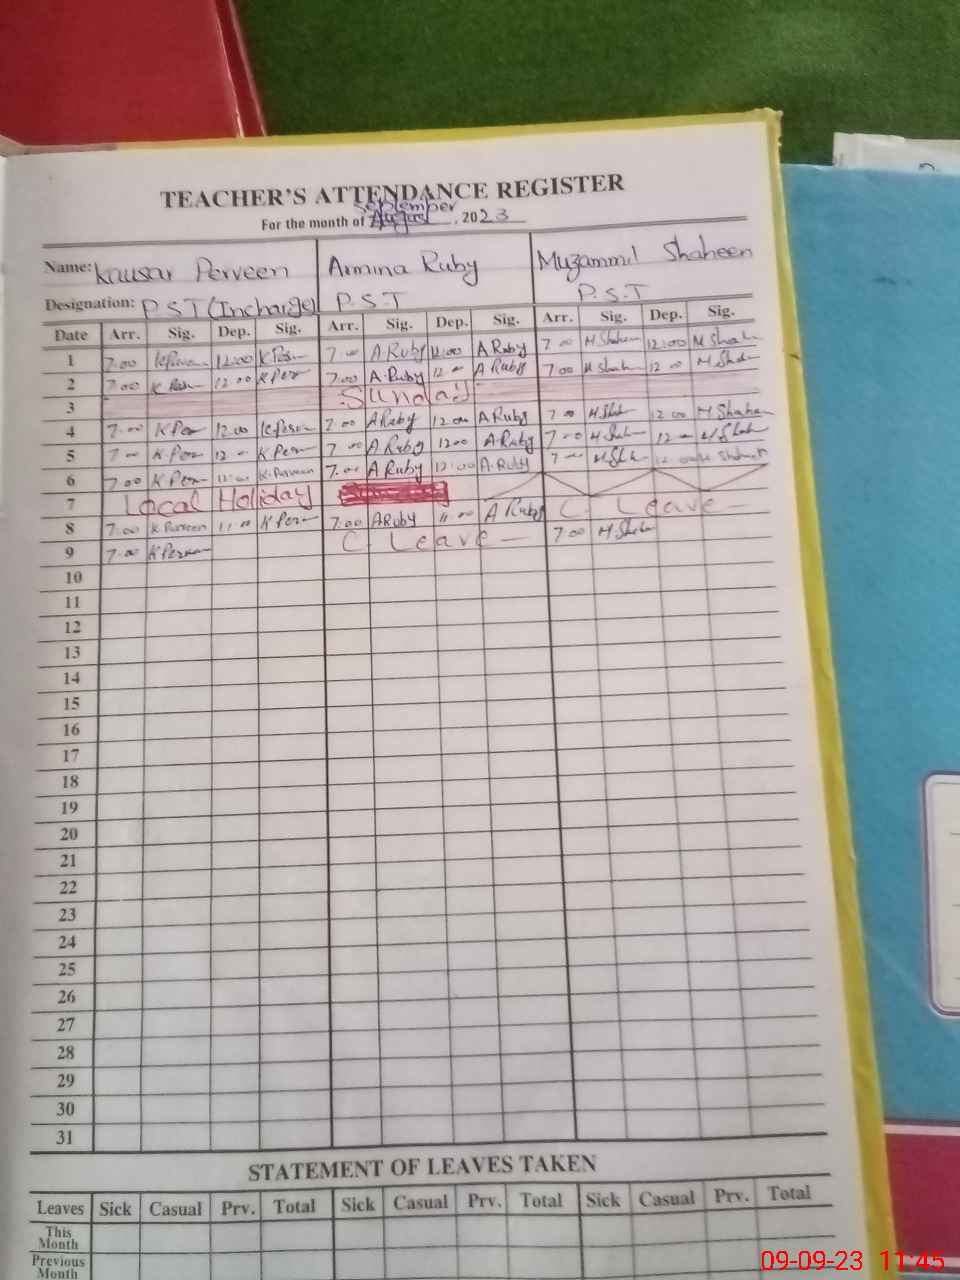 TEACHER'S ATTENDANCE REGISTER
September
For the month of August, 2023
Name: Kausar Perveen Armina Ruby Muzammil Shaheen
Designation: P.S.T (Incharge) P.S.T P.S.T
Date Arr. Sig. Dep. Sig. Arr. Sig. Dep. Sig. Arr. Sig. Dep. Sig.
1 7:00 12:00 K Per 7:00 A Ruby 12:00 A Ruby 7:00 M Shaheen 12:00 M Shah
2 7:00 K Per 12:00 K Per 7:00 A.Ruby 12:00 A Ruby 7:00 M Shah 12:00 M Shah
3 Sunday
4 7:00 K Per 12:00 7:00 A Ruby 12:00 A Ruby 7:00 M Shah 12:00 M Shahe
5 7:00 K Per 12:00 K Per 7:00 A Ruby 12:00 A Ruby 7:00 M Shah 12:00 M Shah
6 7:00 K Per K. Perveen 7:00 A Ruby 12:00 A. Ruby 7:00 M Sha 12:00
7 Local Holliday C Leave
8 7:00 K Perveen 11:00 K Per 7:00 A Ruby 11:00 A Ruby
9 7:00 K Perveen C Leave 7:00 M Shah
10
11
12
13
14
15
16
17
18
19
20
21
22
23
24
25
26
27
28
29
30
31
STATEMENT OF LEAVES TAKEN
Leaves Sick Casual Prv. Total Sick Casual Prv. Total Sick Casual Prv. Total
This
Month
Previous
Month
09-09-23 11:45